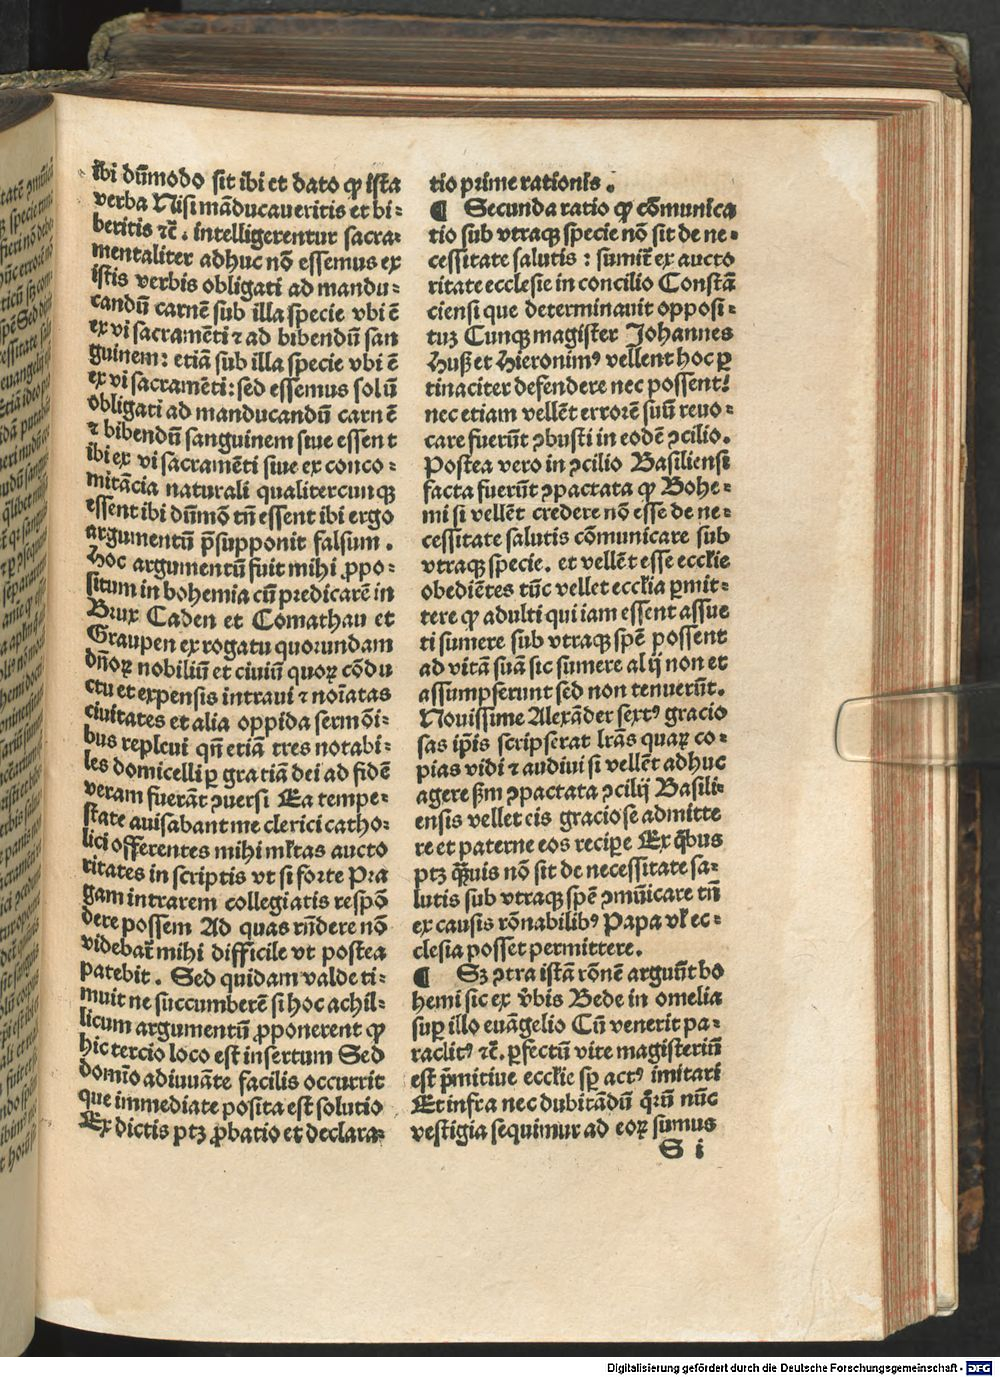 ibi dūmodo sit ibi et dato ꝙ ista
verba Nisi māducaueritis et bi⸗
beritis ⁊c̄. intelligerentur sacra⸗
mentaliter adhuc nō essemus ex
istis verbis obligati ad mandu⸗
candū carnē sub illa specie vbi ē
ex vi sacramēti ⁊ ad bibendū san
guinem: etiā sub illa specie vbi ē
ex vi sacramēti: sed essemus solū
obligati ad manducandū carnē
⁊ bibendū sanguinem siue essent
ibi ex vi sacramēti siue ex conco⸗
mitācia naturali qualitercunqꝫ
essent ibi dūmō tn̄ essent ibi ergo
argumentū p̄supponit falsum.
Hoc argumentū fuit mihi ꝓpo⸗
situm in bohemia cū predicarē in
Brux Caden et Comathau et
Graupen ex rogatu quorundam
dn̄oꝝ nobiliū et ciuiū quoꝝ cōdu
ctu et expensis intraui ⁊ noīatas
ciuitates et alia oppida sermōi⸗
bus repleui qn̄ etiā tres notabi⸗
les domicelli ꝑ gratiā dei ad fidē
veram fuerāt ꝯuersi Ea tempe⸗
state auisabant me clerici catho⸗
lici offerentes mihi ml̄tas aucto
ritates in scriptis vt si forte Pra
gam intrarem collegiatis respō
dere possem Ad quas rn̄dere nō
videbat᷑ mihi difficile vt postea
patebit. Sed quidam valde ti⸗
muit ne succumberē si hoc achil⸗
licum argumentū ꝓponerent ꝙ
hic tercio loco est insertum Sed
domīo adiuuāte facilis occurrit
que immediate posita est solutio
Ex dictis ptꝫ ꝓbatio et declara⸗
tio prime rationis.
¶ Secunda ratio ꝙ cōmunica
tio sub vtraqꝫ specie nō sit de ne⸗
cessitate salutis: sumit᷑ ex aucto
ritate ecclesie in concilio Constā
ciensi que determinauit opposi⸗
tuꝫ Cunqꝫ magister Johannes
Huß et Hieronimꝰ vellent hoc ꝑ
tinaciter defendere nec possent:
nec etiam vellēt errorē suū reuo⸗
care fuerūt ꝯbusti in eodē ꝯcilio.
Postea vero in ꝯcilio Basiliensi
facta fuerūt ꝯpactata ꝙ Bohe⸗
mi si vellēt credere nō esse de ne⸗
cessitate salutis cōmunicare sub
vtraqꝫ specie. et vellēt esse eccłie
obediētes tūc vellet eccłia ꝑmit⸗
tere ꝙ adulti qui iam essent assue
ti sumere sub vtraqꝫ spē possent
ad vitā suā sic sumere alij non et
assumpserunt sed non tenuerūt.
Nouissime Alexāder sextꝰ gracio
sas ip̄is scripserat lr̄as quaꝝ co⸗
pias vidi ⁊ audiui si vellēt adhuc
agere ẜm ꝯpactata ꝯcilij Basili⸗
ensis vellet eis graciose admitte
re et paterne eos recipe Ex q̄bus
ptꝫ q̄uis nō sit de necessitate sa⸗
lutis sub vtraqꝫ spē ꝯmūicare tn̄
ex causis rōnabilibꝰ Papa vl̄ ec⸗
clesia posset permittere.
¶ Sꝫ ꝯtra istā rōnē arguūt bo
hemi sic ex v̄bis Bede in omelia
suꝑ illo euāgelio Cū venerit pa⸗
raclitꝰ ⁊c̄. ꝑfectū vite magisteriū
est p̄mitiue eccłie sꝑ actꝰ imitari
Et infra nec dubitādū q̄rū nūc
vestigia sequimur ad eoꝝ sumus
S i
Digitalisierung gefördert durch die Deutsche Forschungsgemeinschaft - DFG